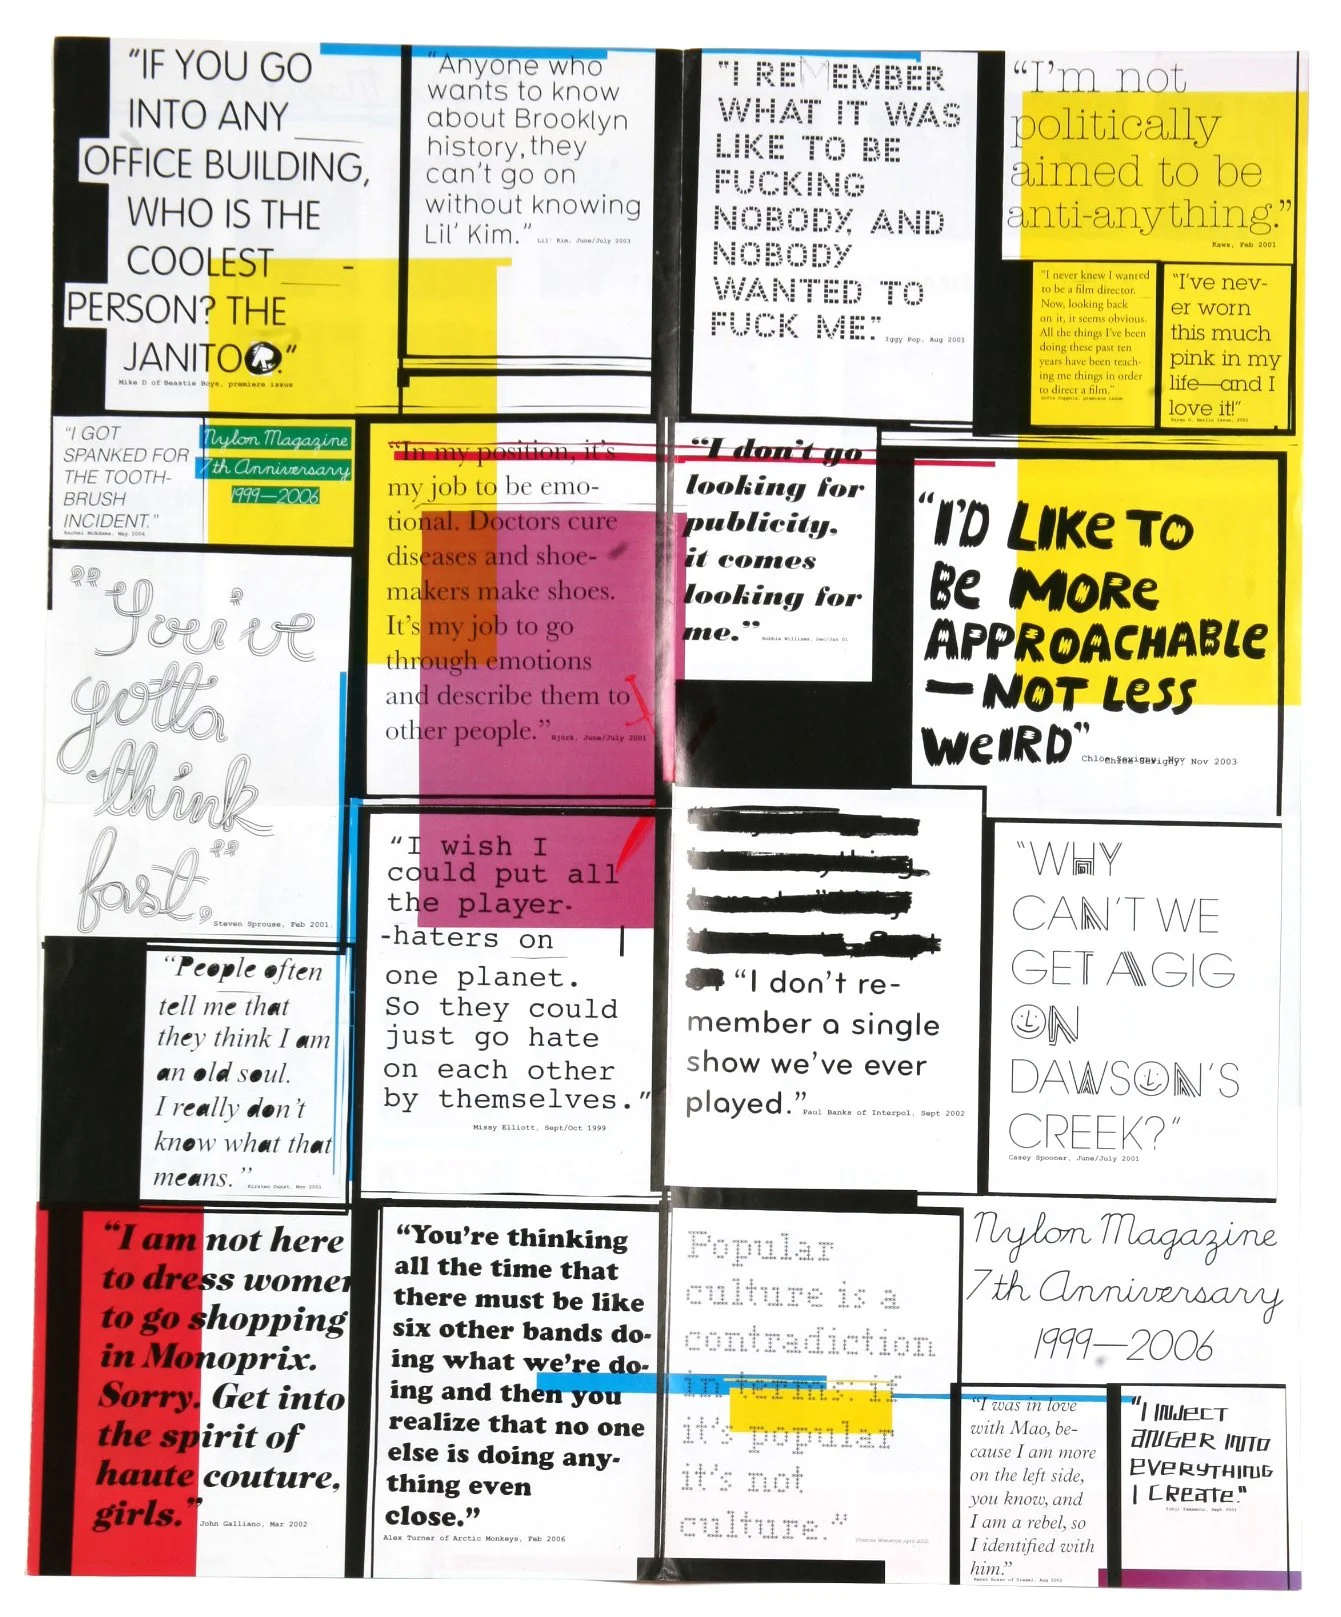 “IF YOU GO
INTO ANY
OFFICE BUILDING,
WHO IS THE
COOLEST -
PERSON? THE
JANITOR.”
Mike D of Beastie Boys, premiere issue
“Anyone who
wants to know
about Brooklyn
history, they
can’t go on
without knowing
Lil’ Kim.” Lil’ Kim, June/July 2003
“I REMEMBER
WHAT IT WAS
LIKE TO BE
FUCKING
NOBODY, AND
NOBODY
WANTED TO
FUCK ME.” Iggy Pop, Aug 2001
“I’m not
politically
aimed to be
anti-anything.”
Kaws, Feb 2001
“I never knew I wanted
to be a film director.
Now, looking back
on it, it seems obvious.
All the things I’ve been
doing these past ten
years have been teach-
ing me things in order
to direct a film.”
Sofia Coppola, premiere issue
“I’ve nev-
er worn
this much
pink in my
life—and I
love it!”
Karen O, Berlin Issue, 2001
“I GOT
SPANKED FOR
THE TOOTH-
BRUSH
INCIDENT.”
Rachel McAdams, May 2004
Nylon Magazine
7th Anniversary
1999—2006
“In my position, it’s
my job to be emo-
tional. Doctors cure
diseases and shoe-
makers make shoes.
It’s my job to go
through emotions
and describe them to
other people.” Björk, June/July 2001
“I don’t go
looking for
publicity,
it comes
looking for
me.” Robbie Williams, Dec/Jan 01
“I’D LIKE TO
BE MORE
APPROACHABLE
—NOT LESS
WEIRD” Chloe Sevigny, Nov 2003
“You’ve
gotta
think
fast.”
Steven Sprouse, Feb 2001.
“I wish I
could put all
the player-
-haters on
one planet.
So they could
just go hate
on each other
by themselves.”
Missy Elliott, Sept/Oct 1999
“I don’t re-
member a single
show we’ve ever
played.” Paul Banks of Interpol, Sept 2002
“WHY
CAN’T WE
GET A GIG
ON
DAWSON’S
CREEK?”
Casey Spooner, June/July 2001
“People often
tell me that
they think I am
an old soul.
I really don’t
know what that
means.” Kirsten Dunst, Nov 2001
“I am not here
to dress women
to go shopping
in Monoprix.
Sorry. Get into
the spirit of
haute couture,
girls.” John Galliano, Mar 2002
“You’re thinking
all the time that
there must be like
six other bands do-
ing what we’re do-
ing and then you
realize that no one
else is doing any-
thing even
close.”
Alex Turner of Arctic Monkeys, Feb 2006
Popular
culture is a
contradiction
in terms; if
it’s popular
it’s not
culture.”
Vivienne Westwood, April 2002
Nylon Magazine
7th Anniversary
1999—2006
“I was in love
with Mao, be-
cause I am more
on the left side,
you know, and
I am a rebel, so
I identified with
him.”
Renzo Rosso of Diesel, Aug 2002
“I INJECT
ANGER INTO
EVERYTHING
I CREATE.”
Yohji Yamamoto, Sept 2001